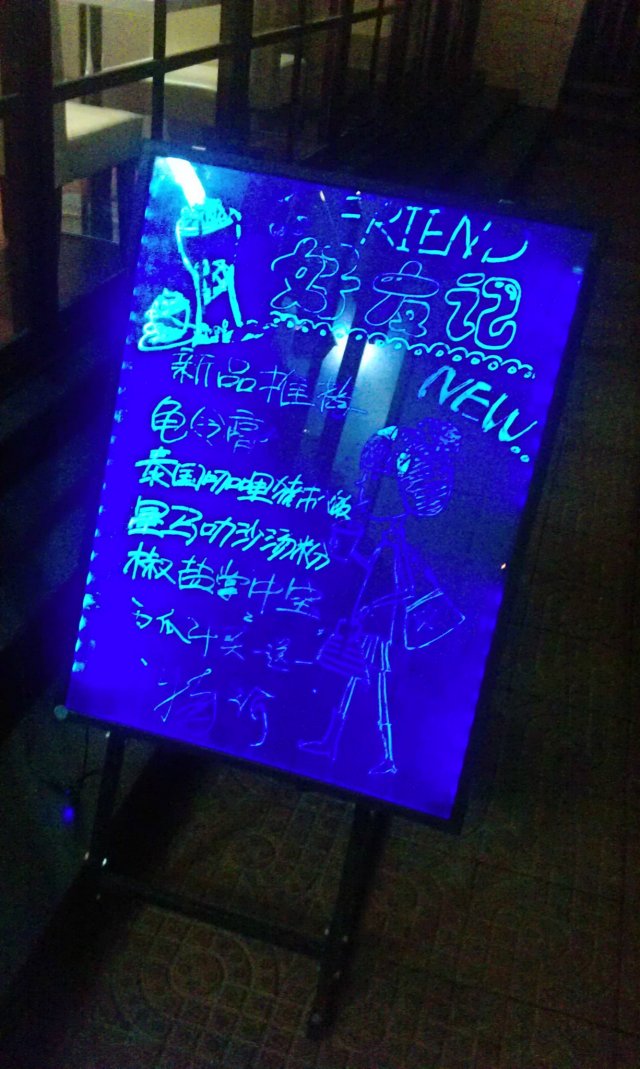 FRIEND
好友记
新品推荐
NEW..
龟苓膏
泰国咖喱猪扒饭
星马叻沙汤粉
椒盐掌中宝